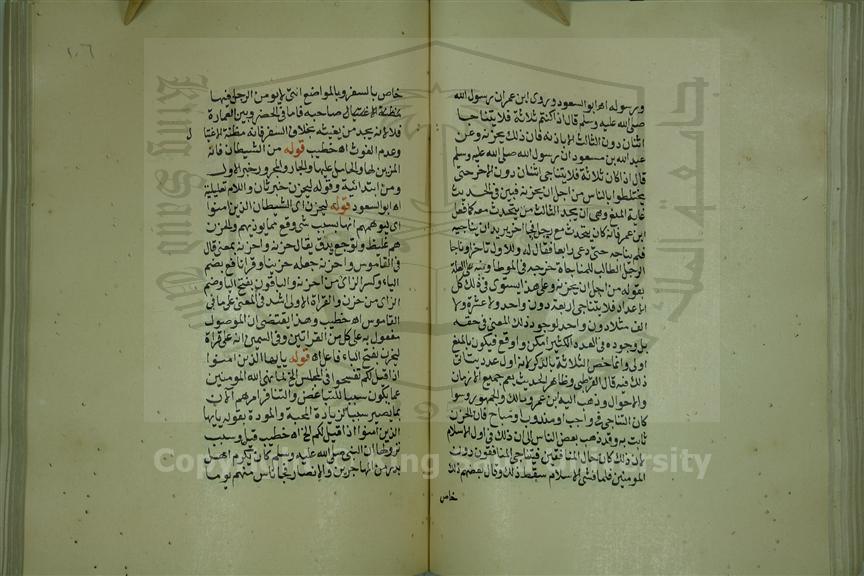 ورسوله اه ابو السعود وروى ابن عمران رسول الله
صلى الله عليه وسلم قال اذا كنتم ثلاثة فلا يتناجيا
اثنان دون الثالث الا باذنه فان ذلك يحزنه وعن
عبد الله بن مسعود ان رسول الله صلى الله عليه وسلم
قال اذا كان ثلاثة فلا يتناجى اثنان دون الاخر حتى
يختلطوا بالناس من اجل ان يحزنه فبين في الحديث
غاية المنع وهي ان يجد الثالث من يتحدث معه كما فعل
ابن عمر فانه كان يتحدث مع رجل فجا اخر يريد ان يناجيه
فلم يناجه حتى دعى رابعا فقال له وللاول تاخرا وناجا
الرجل الطالب للمناجاة خرجه في الموطا ونبه على العلة
بقوله من اجل ان يحزنه وعلى هذا يستوى في ذلك كل
الاعداد فلا يتناجى اربعة دون واحد ولا عشرة ولا
الف مثلا دون واحد لوجود ذلك المعنى في حقه
بل وجوده في العدد الكثير امكن واوقع فيكون بالمنع
اولى وانما خص الثلاثة بالذكر لانه اول عدد يتاتى
ذلك فيه قال القرطبى وظاهر الحديث يعم جميع الازمان
والاحوال وذهب اليه ابن عمر ومالك والجمهور وسوا
كان التناجى في واجب او مندوب او مباح فان الحزن
ثابت به وقد ذهب بعض الناس الى ان ذلك في اول الاسلام
لان ذلك كان حال المنافقين فيتناجى المنافقون دون
المومنين فلما فشى الاسلام سقط ذلك وقال بعضهم ذلك
خاص
١٠٦
خاص بالسفر وبالمواضع التى لا يومن الرجل فيها
صاحبه فاما في الحضر وبين العمارة
فلا لانه يجد من يغيثه بخلاف السفر فانه مظنة الاغتيا
ل
وعدم الغوث اه خطيب قوله من الشيطان فانه
المزين لها والحامل عليها والجار والمجرور خبر الاول
ومن ابتدائية وقوله ليحزن خبر ثان واللام تعليلية
اه ابو السعود قوله ليحزن اى الشيطان الذين امنوا
اى يوهمهم انها بسبب شى وقع مما يوذيهم والحزن
هم غليظ وتوجع يدق يقال حزنه واحزنه بمعنى قال
في القاموس واحزنه جعله حزينا وقرا نافع بضم
الياء وكسر الزاى من احزنه والباقون بفتح الياء وضم
الزاى من حزن والقراة الاولى اشد في المعنى على ما في
القاموس اه خطيب وهذا يقتضى ان الموصول
مفعول به على كل من القراتين وفي السمين انه على قراة
ليحزن بفتح الياء فاعل اه قوله يا ايها الذين امنوا
اذا قيل لكم تفسحوا في المجلس الخ لما نهى الله المومنين
عما يكون سببا للتباغض والتنافر امرهم الان
بما يصير سببا لزيادة المحبة والمودة بقوله يا ايها
الذين امنوا اذا قيل لكم الخ اه خطيب قيل وسبب
نزولها ان النبى صلى الله عليه وسلم كان يكرم اهل
بدر من المهاجرين والانصار فجا ناس منهم يوما
جامعة الملك
King Saud
Copyright © King Saud University